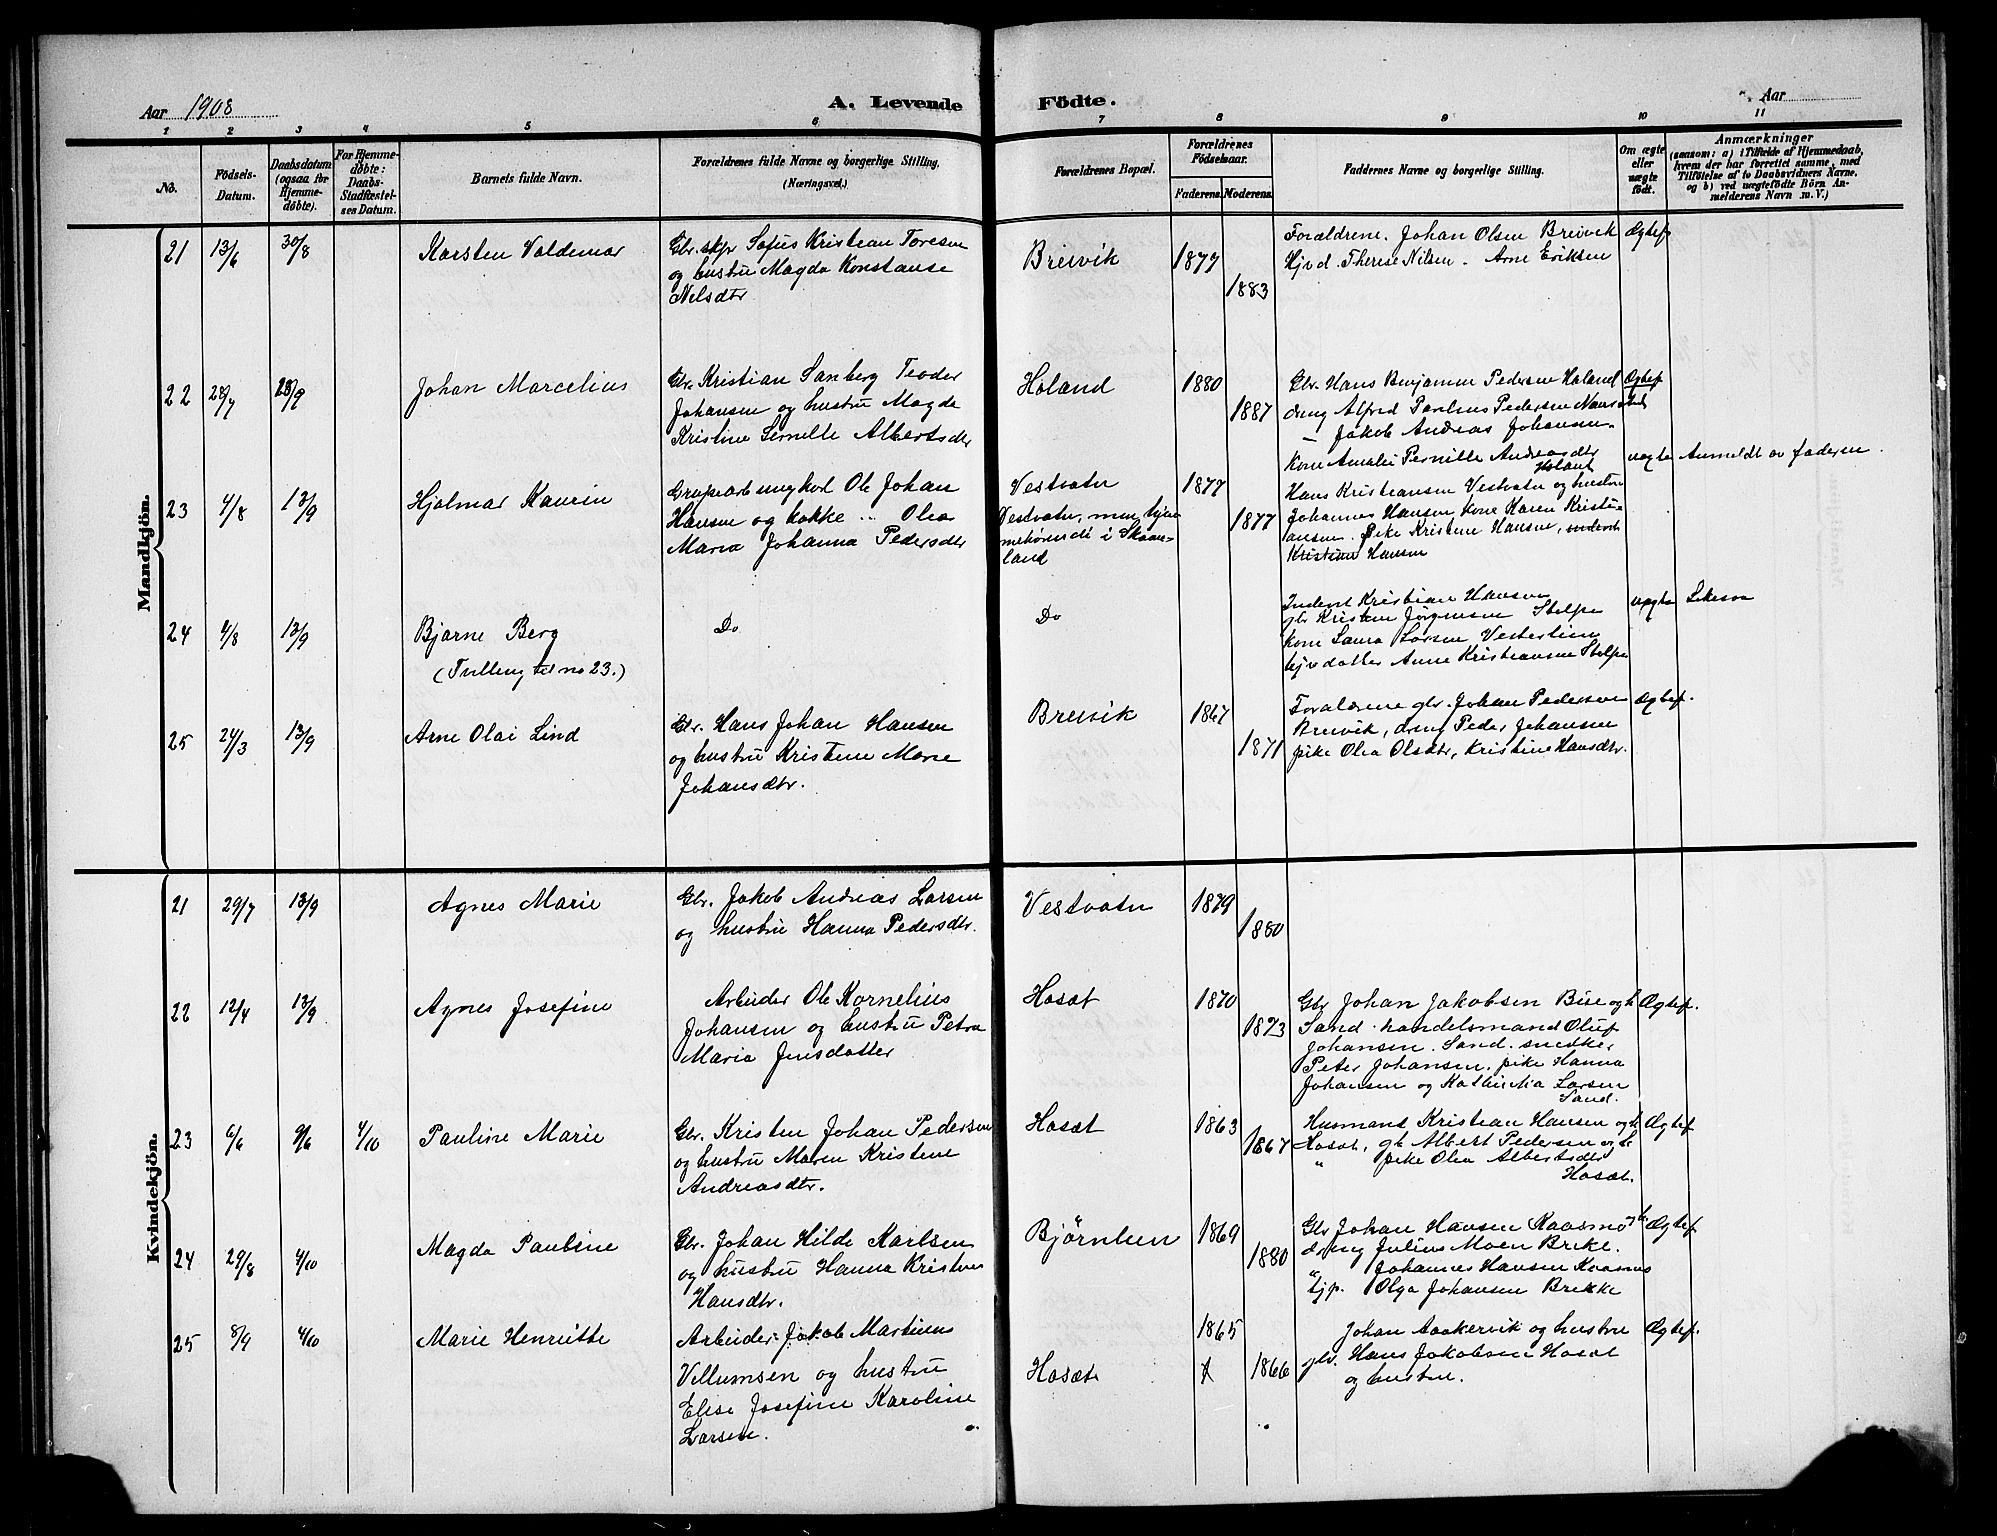 Aar 1908
A. Levende Födte.
Aar
1 2 3 4 5 6 7 8 9 10 11
No.
Födsels-
Datum.
Daabsdatum
(ogsaa for
Hjemme-
döbte).
For Hjemme-
döbte:
Daabs-
Stadfæstel-
ses Datum.
Barnets fulde Navn.
Forældrenes fulde Navne og borgerlige Stilling.
(Næringsvei.)
Forældrenes Bopæl.
Forældrenes
Födselsaar.
Faderens. Moderens.
Faddernes Navne og borgerlige Stilling.
Om ægte
eller
uægte
födt.
Anmærkninger
(saasom: a) i Tilfælde af Hjemmedaab,
hvem der har forrettet samme, med
Tilföielse af to Daabsvidners Navne,
og b) ved uægtefödte Börn An-
melderens Navn m. V.)
Mandkjön.
21 13/6 30/8 Karsten Valdemar
Gbr. skpr Sofus Kristian Toresen
og hustru Magda Konstanse
Nelsdtr
Breivik 1877 1883
Forældrene. Johan Olsen Breivik
Hjvd. Therese Nilsen. Arne Eriksen
Ægtef
22 28/7 28/9 Johan Marcelius
Gbr. Kristian Sanberg Teoder
Johansen og hustru Magda
Kristine Pernille Albertsdtr
Holand 1880 1887
Gbr. Hans Benjamin Pedersen Holand
dreng Alfred Paulus Pedersen Naurstad
— Jakob Andreas Johansen
Kone Amalie Pernille Andreasdtr
Holand
Ægtef
23 4/8 13/9 Hjalmar Kaurin
Grubearb ungkarl Ole Johan
Hansen og kokke ... Olea
Maria Johanna Pedersdtr
Vestvatn
Vestvatn, men hjem
mehørende i Skaan-
land
1877 1877
Hans Kristiansen Vestvatn og hustru
Johannes Hansen kone Karen Kristi-
ansen. Pike Kristine Hansen,
Kristian Hansen
uægte Anmeldt av faderen.
24 4/8 13/9 Bjarne Berg
(Tvilling til no 23.)
Do
Do
Kristian Hansen
gbr Kristen Jørgensen Stolpe
kone Laura Larsen Vesterlien
hjvdatter Anne Kristiansen Stolpe
uægte Likesaa
25 24/3 13/9 Arne Olai Lind
Gbr. Hans Johan Hansen
og hustru Kristine Marie
Johansdtr.
Breivik 1867 1871
Forældrene gbr. Johan Pedersen
Breivik, dreng Peder Johansen
pike Olea Olsdtr, Kristine Hansdtr.
Ægtef.
Kvindekjön.
21 29/7 13/9 Agnes Marie
Gbr. Jakob Andreas Larsen
og hustru Hanna Pedersdtr.
Vestvatn 1879 1880
22 12/4 13/9 Agnes Josefine
Arbeider Ole Kornelius
Johansen og hustru Petra
Maria Jensdatter
Hosæt 1870 1873
Gbr Johan Jakobsen Bise og h
Sand. handelsmand Oluf
Johansen. Sand. snedker
Peter Johansen, pike Hanna
Johansen og Kathinka Larsen
Sand.
Ægtef.
23 6/6 9/6 4/10 Pauline Marie
Gbr. Kristen Johan Pedersen
og hustru Maren Kristine
Andreasdtr.
Hosæt 1863 1867
Husmand Kristian Hansen og h
Hosæt, gb Albert Pedersen og h
" pike Olea Albertsdtr
Hosæt.
Ægtef
24 29/8 4/10 Magda Pauline
Gbr. Johan Hilde Karlsen
og hustru Hanna Kristine
Hansdtr.
Bjørnlien 1869 1880
Gbr Johan Hansen Kaasmo og h
dreng Julius Moen Brekke.
" Johannes Hansen Kaasmo
hjp. Olga Johansen Brekke
Ægtef
25 8/9 4/10 Marie Henriette
Arbeider Jakob Martinus
Villumsen og hustru
Elise Josefine Karoline
Larsen.
Hosæt 1865 1866
Johan Aakervik og hustru
gbr. Hans Jakobsen Hosæt
og hustru.
Ægtef.